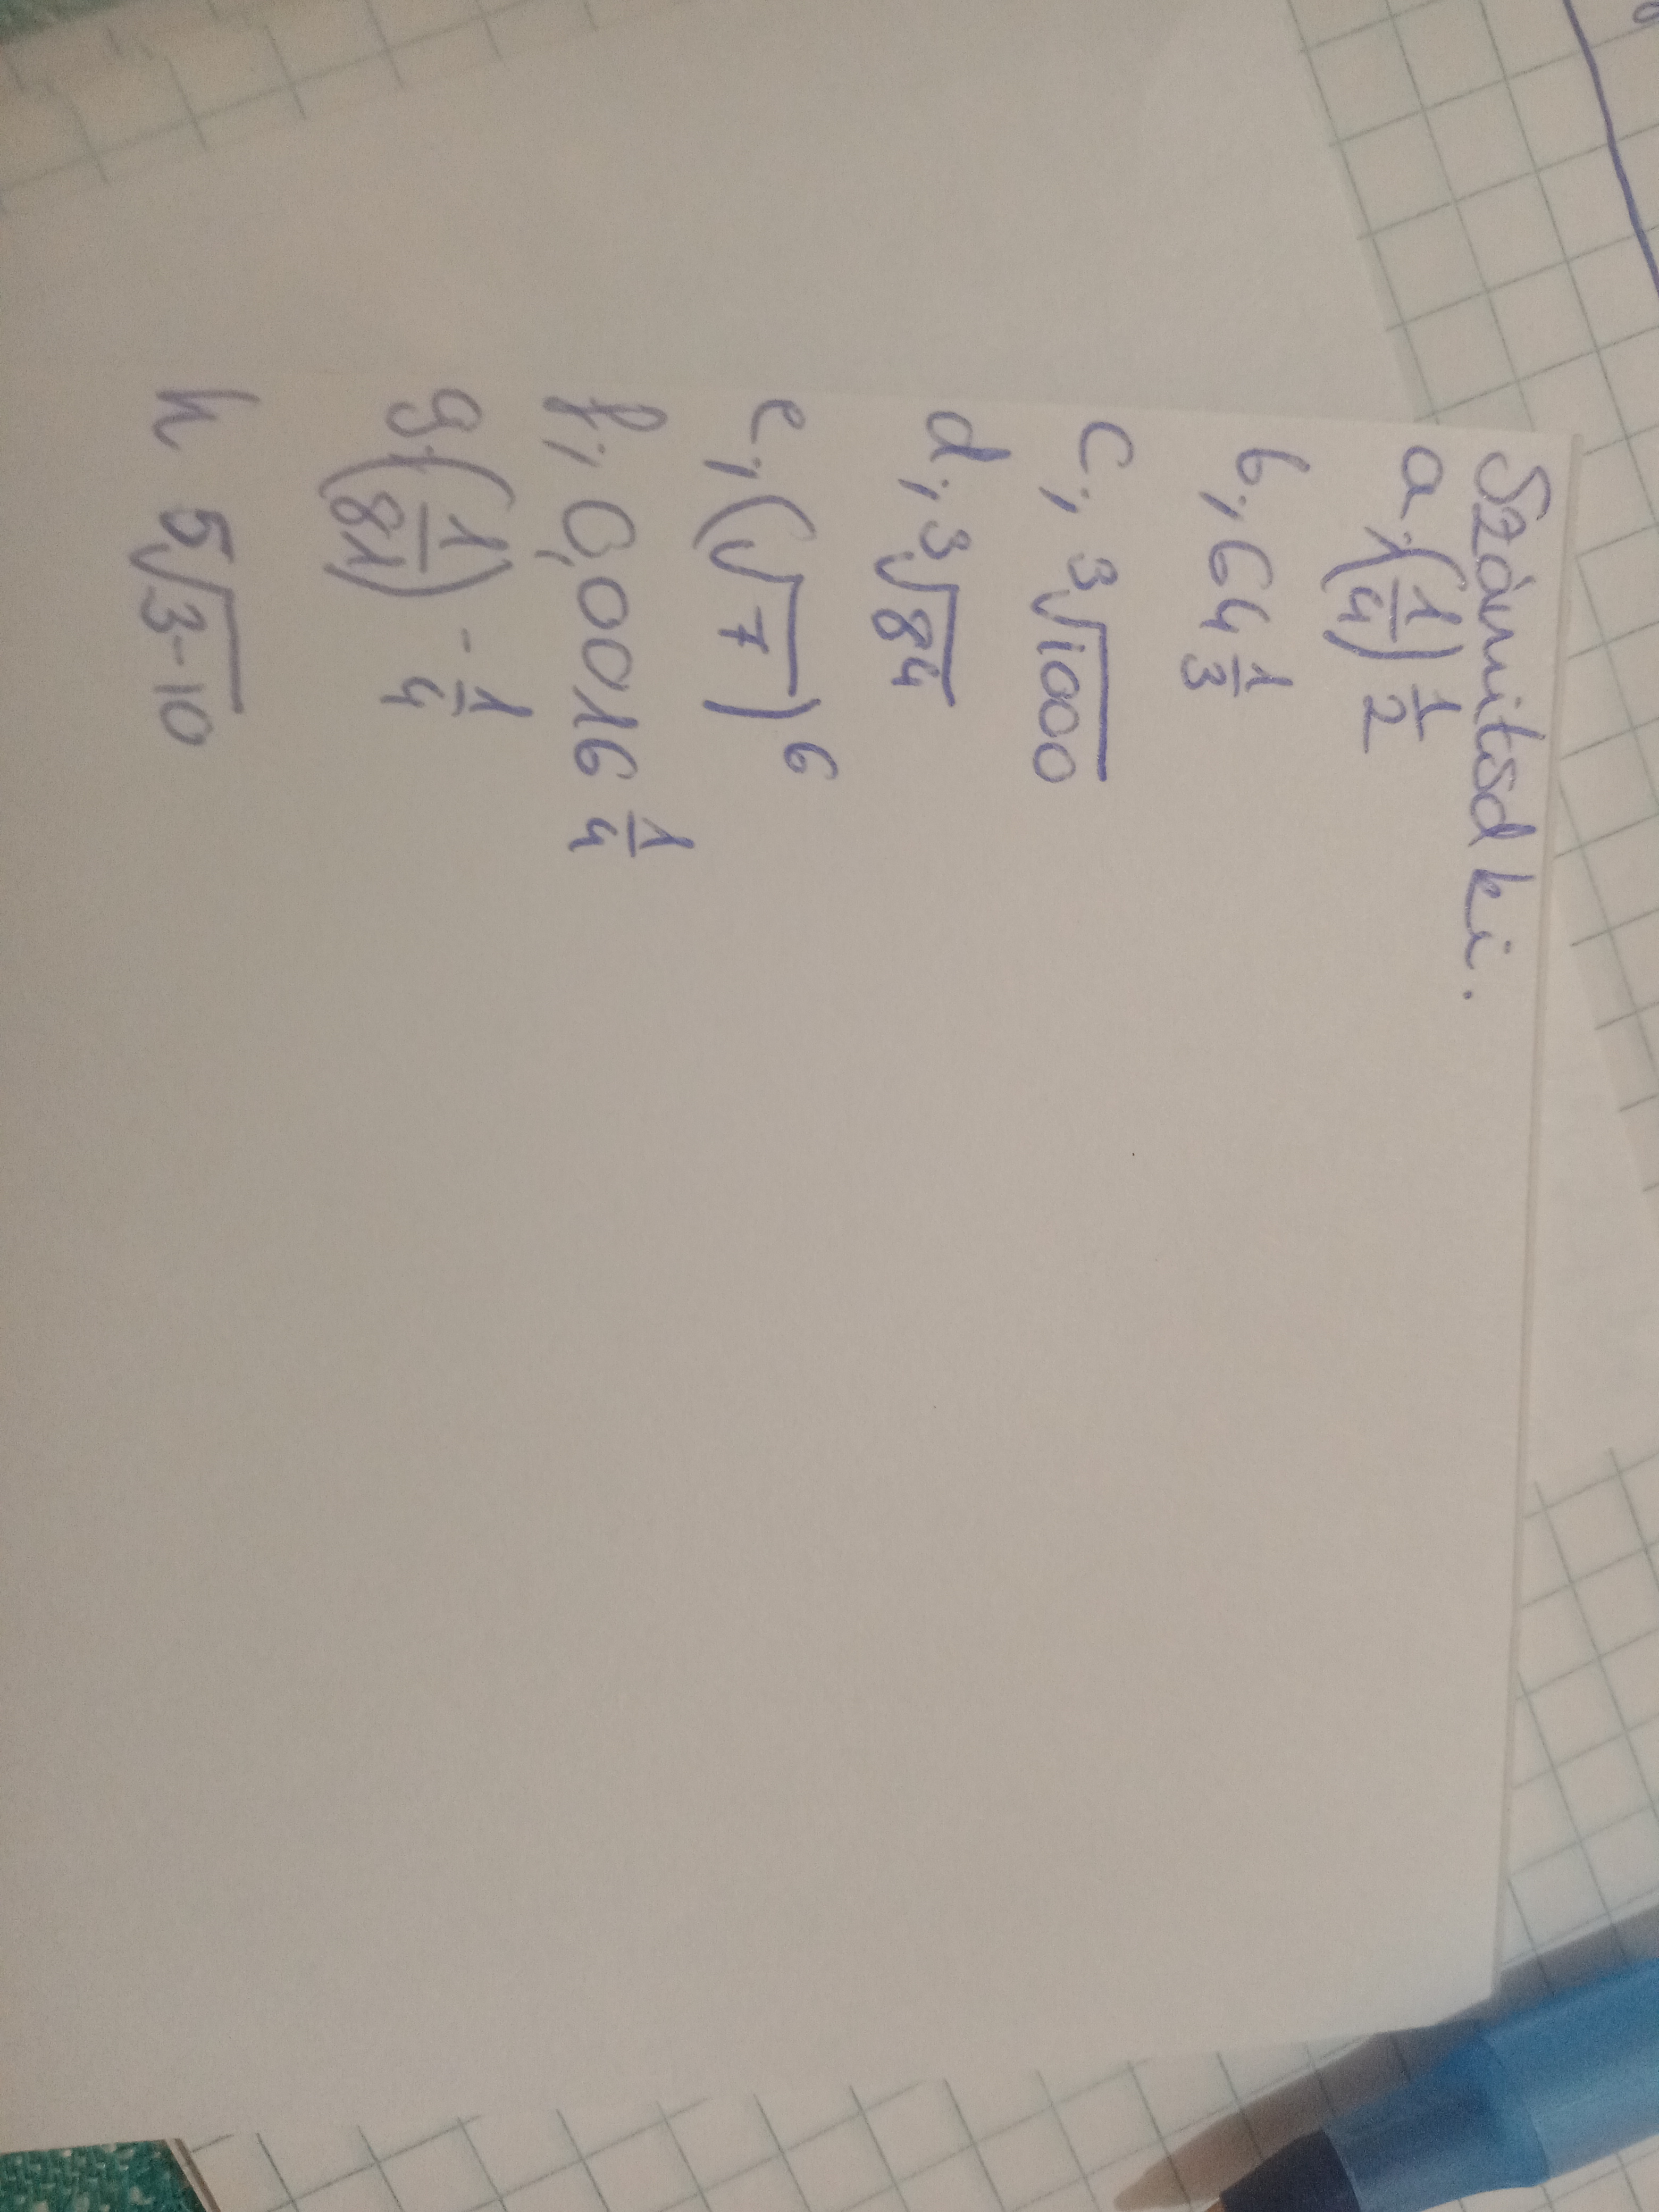 Számítsd ki.
a, (1/4) 1/2
b, 64 1/3
c, ³√1000
d, ³√84
e, (√7)6
f, 0,0016 1/4
g, (1/81) -1/4
h 5√3-10